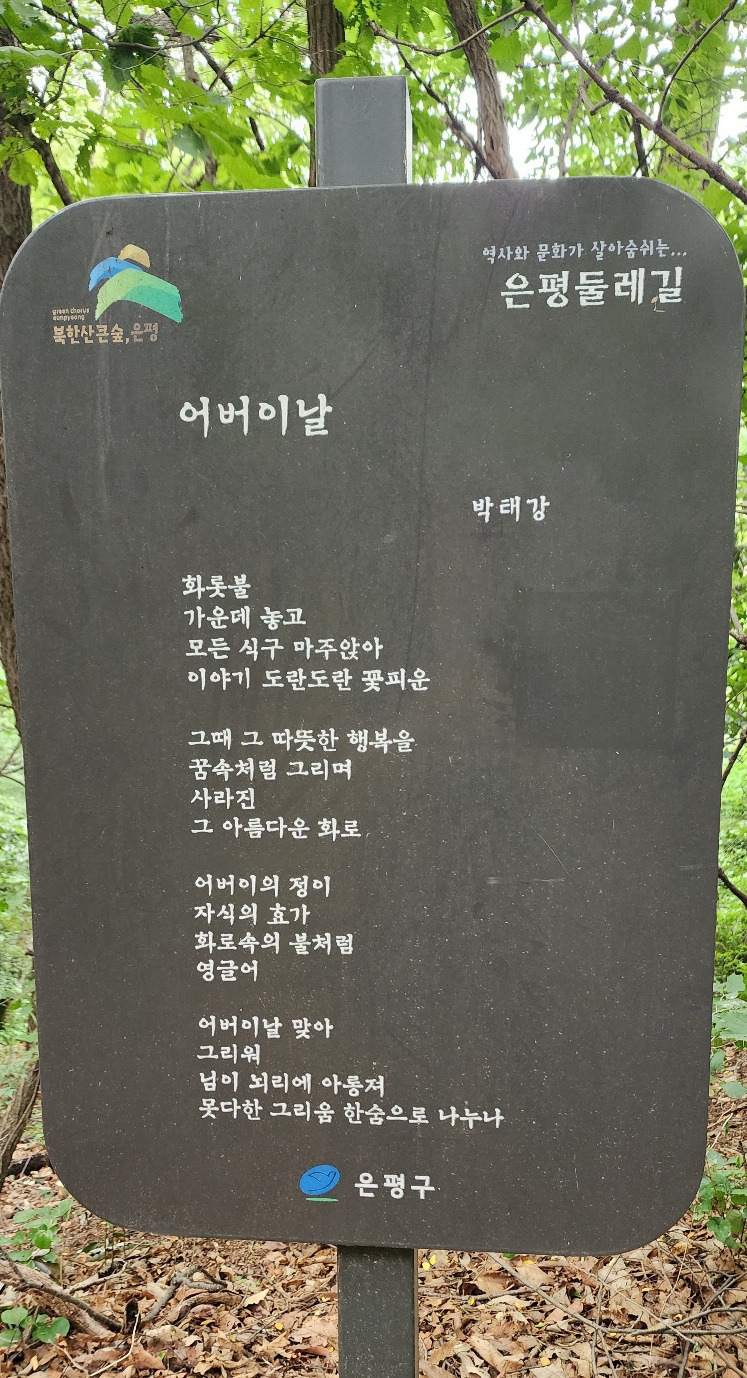 green chorus
eunpyeong
북한산큰숲,은평
역사와 문화가 살아숨쉬는...
은평둘레길
어버이날
박태강
화롯불
가운데 놓고
모든 식구 마주앉아
이야기 도란도란 꽃피운
그때 그 따뜻한 행복을
꿈속처럼 그리며
사라진
그 아름다운 화로
어버이의 정이
자식의 효가
화로속의 불처럼
영글어
어버이날 맞아
그리워
님이 뇌리에 아롱져
못다한 그리움 한숨으로 나누나
은평구